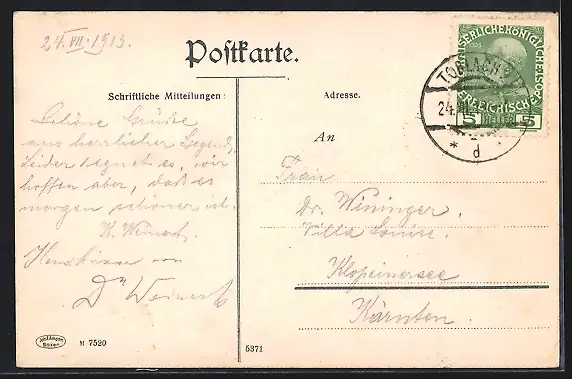 24. VII. 1913.
Postkarte.
Schriftliche Mitteilungen:
Schöne Grüße
aus herrlicher Gegend,
leider regnet es, wir
hoffen aber, daß es
morgen schöner ist.
K. Weinert
Handküsse von
Dr Weinert
Joh. F. Amonn
Bozen
M 7520
5371
Adresse.
An
Frau
Dr. Wininger.
Villa Louise.
Klopeinersee
Kärnten.
KAISERLICHE KÖNIGLICHE
ÖSTERREICHISCHE POST
5 HELLER 5
TOBLACH 2
24.
* d *